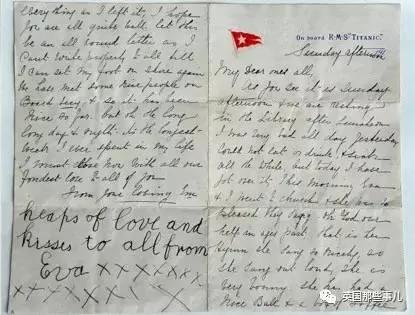 On board R.M.S "TITANIC."
Sunday afternoon
My Dear ones all,
As you see it is Sunday
afternoon & we are resting
in the Library after Luncheon
I was very bad all day yesterday
Could not eat or drink & sick
all the while, but today I have
got over it This morning Eva
& I went to church & she was so
pleased they sang Oh God our
help in ages past that is her
Hymn she sang so nicely, so
she sang out loud, she is
very bonny she has had a
nice Ball & a box of
everything as I left it, I hope
you are all quite well, let this
be an all round letter as I
Can't write properly to all till
I can set my foot on shore again
We have met some nice people on
Board Lucy, & so it has been
nice so far. but oh the long
long days & nights Its the longest
break I ever spent in my life
I must close Now With all our
fondest love to all of you
From your loving
heaps of love and
kisses to all from
Eva XXXXXXX
XXXXXXXXXX
英国那些事儿